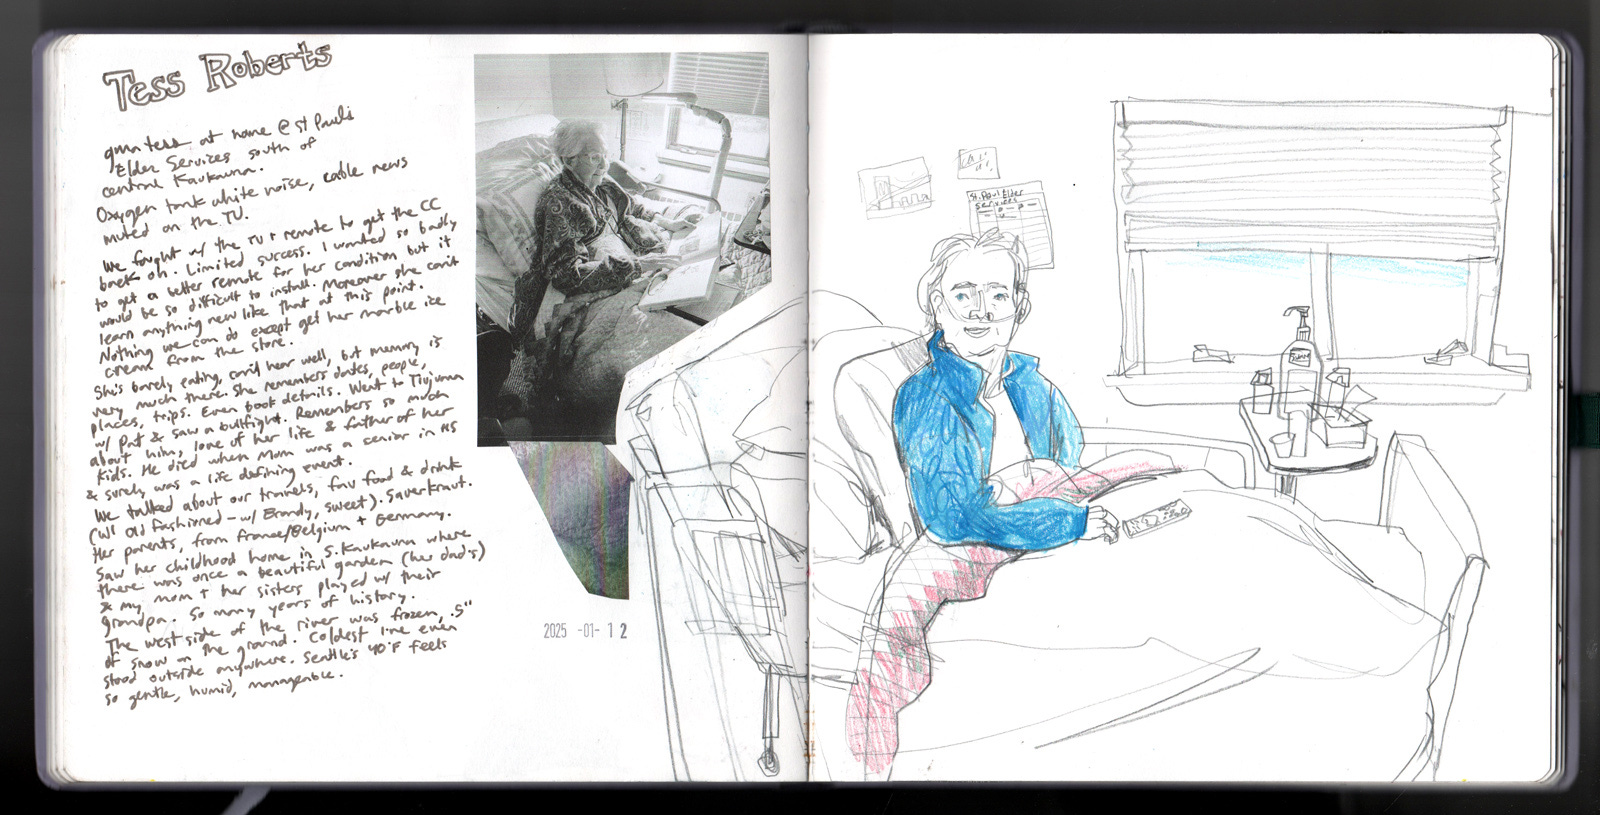 Tess Roberts
gma tess at home @ St Paul's
Elder Services south of
central Kaukauna.
Oxygen tank white noise, cable news
muted on the TV.
We fought w/ the TV + remote to get the CC
back on. Limited success. I wanted so badly
to get a better remote for her condition but it
would be so difficult to install. Moreover she can't
learn anything new like that at this point.
Nothing we can do except get her marble ice
cream from the store.
She's barely eating, can't hear well, but memory is
very much there. She remembers dates, people,
places, trips. Even book details. Went to Tiujuana
w/ Pat & saw a bullfight. Remembers so much
about him, love of her life & father of her
kids. He died when Mom was a senior in HS
& surely was a life defining event.
We talked about our travels, fav food & drink
(WI old fashioned - w/ Brandy, sweet). Sauerkraut.
Her parents, from France/Belgium + Germany.
Saw her childhood home in S. Kaukauna where
there was once a beautiful garden (her dad's)
& my mom + her sisters played w/ their
grandpa. So many years of history.
The west side of the river was frozen, .5"
of snow on the ground. Coldest I've ever
stood outside anywhere. Seattle's 40°F feels
so gentle, humid, manageable.
2025 -01- 12
St. Paul Elder
Services
Suave